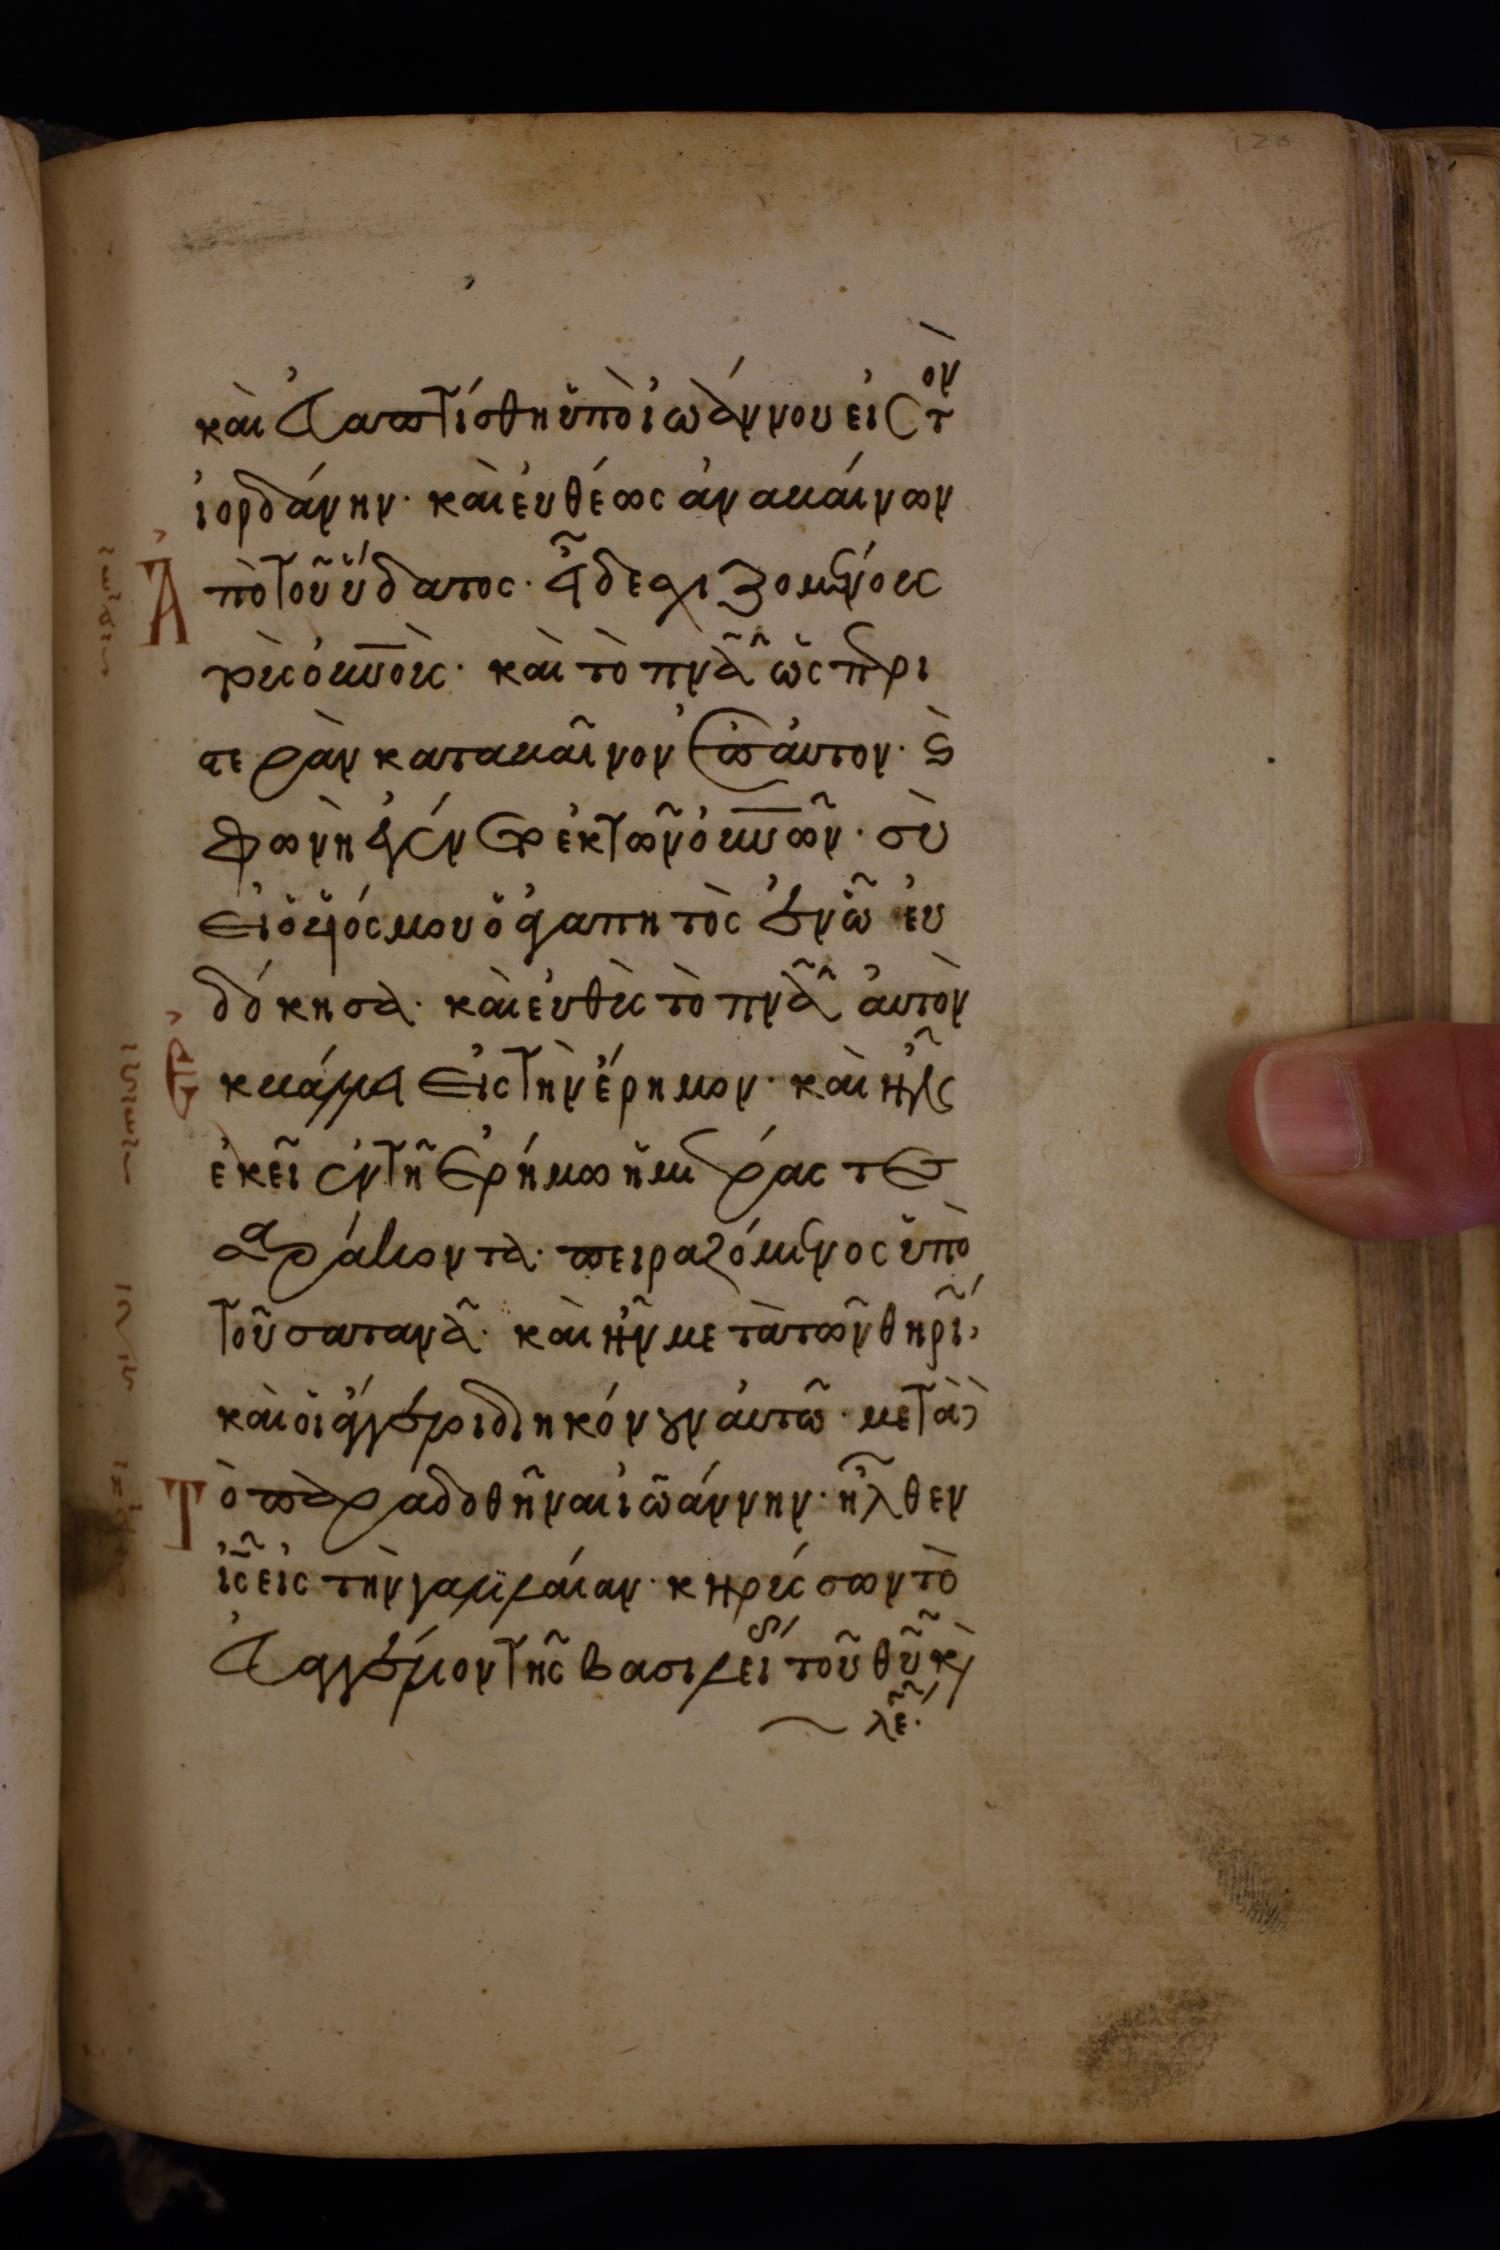 καὶ ἐβαπτίσθη ὑπὸ ἰωάννου εἰς τὸν
ἰορδάνην· καὶ εὐθέως ἀναβαίνων
ἀπὸ τοῦ ὕδατος· εἶδε σχιζομένους
τοὺς οὐνοὺς· καὶ τὸ πνᾶ ὡς περι
στερὰν καταβαῖνον ἐπ αὐτον· καὶ
φωνὴ ἐγένετο ἐκ τῶν οὐνῶν· σὺ
εἶ ὁ υἱός μου ὁ ἀγαπητὸς ἐν ὧ εὐ
δόκησα· καὶ εὐθὺς τὸ πνᾶ αὐτὸν
ἐκβάλλει εἰς τὴν ἔρημον· καὶ ἦν
ἐκεῖ ἐν τῆ ἐρήμω ἡμέρας τεσ
σαράκοντα· πειραζόμενος ὑπὸ
τοῦ σατανᾶ· καὶ ἦν μετὰ τῶν θηρί
καὶ οἱ ἄγγελοι διηκόνουν αὐτῶ· μετὰ
τὸ παραδοθῆναι ἰωάννην· ἦλθεν
ἰς εἰς τὴν γαλιλαίαν· κηρύσσων τὸ
εὐαγγέλιον τῆς βασιλεί τοῦ θῦ κὶ
λε·